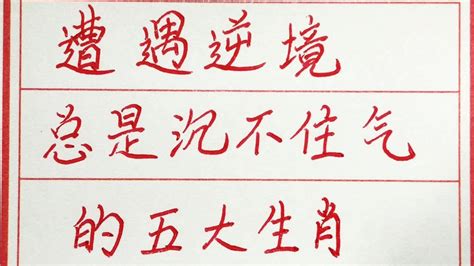 遭遇逆境
总是沉不住气
的五大生肖